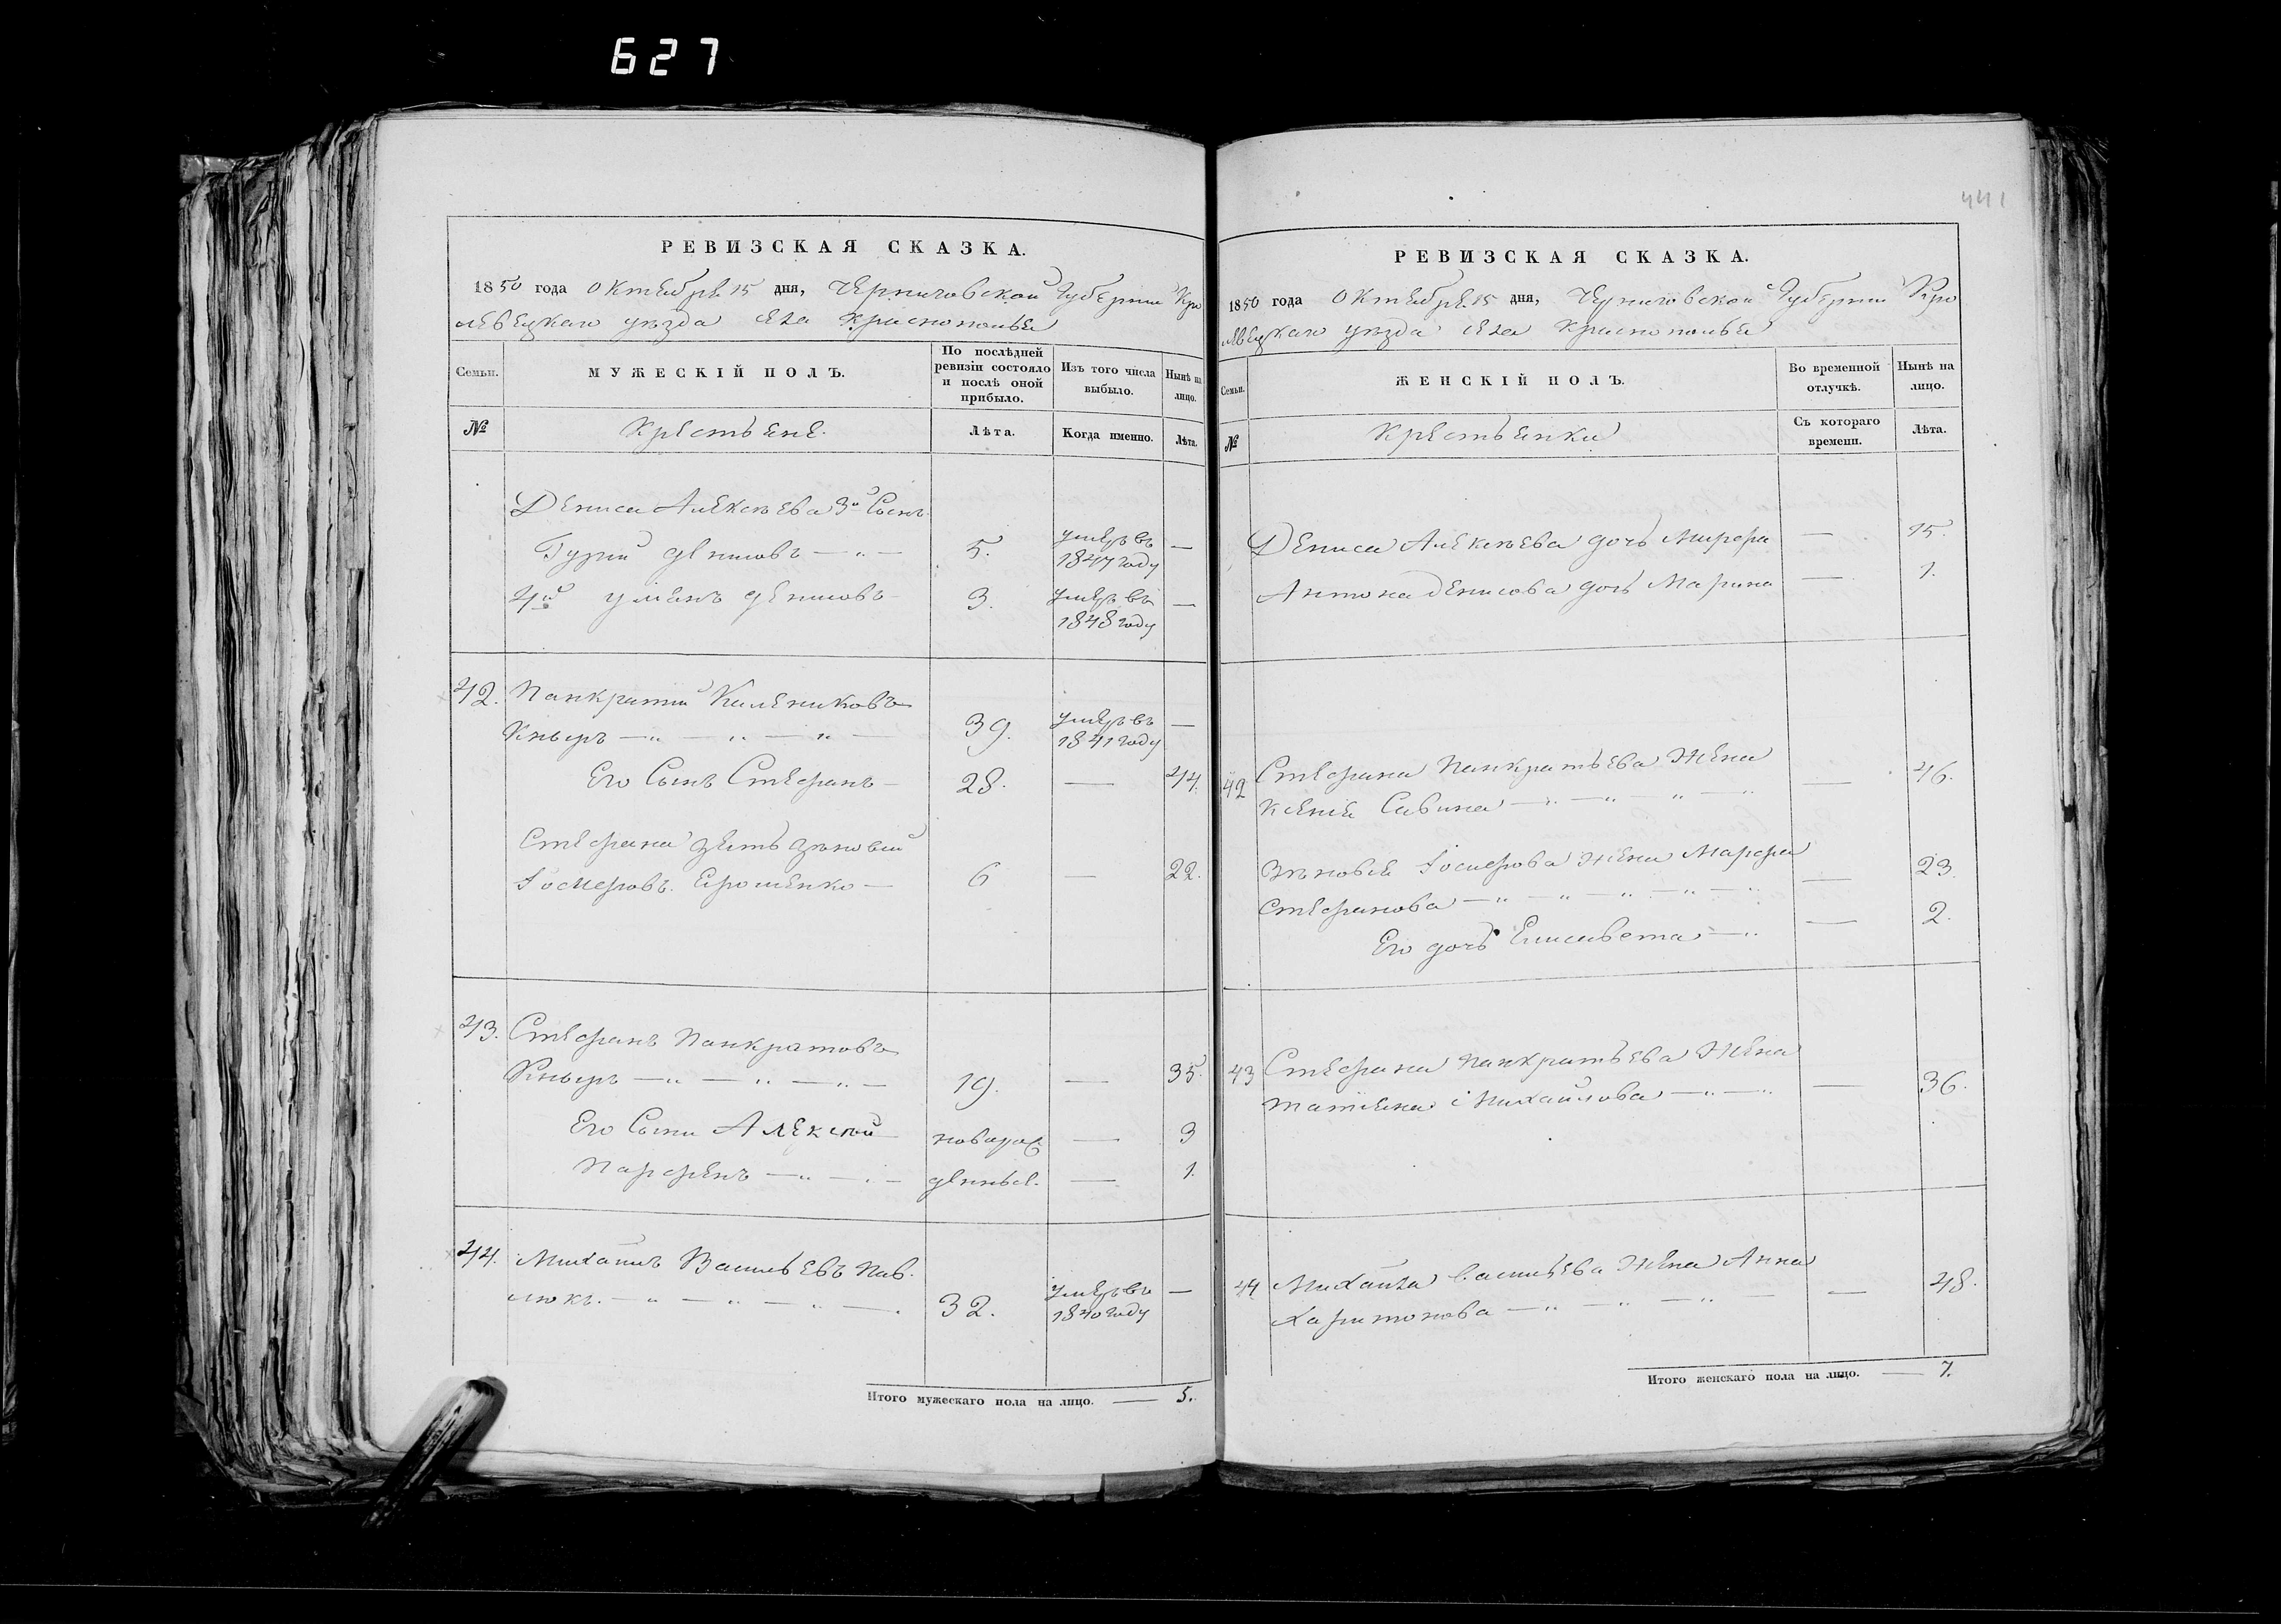 627
441
РЕВИЗСКАЯ СКАЗКА.
1850 года Октября 15 дня, Черниговской Губернии Кро
левецкаго уезда села Краснополья
Семьи.
МУЖЕСКІЙ ПОЛЪ.
По послѣдней ревизіи состояло и послѣ оной прибыло.
Изъ того числа выбыло.
Нынѣ на лицо.
№
Крестьяне.
Лѣта.
Когда именно.
Лѣта.
Дениса Алексѣева 3й Сынъ
Гурій Денисовъ 5. умеръ въ 1847 году
4й Денисовъ 3. умеръ въ 1848 году
42. Панкратій Калениковъ
Кныръ 39. умеръ въ 1841 году
Его Сынъ Стефанъ 28. 44.
Стефана зять Зѣновій
Іосифовъ Ярошенко 6 22.
43. Стефанъ Панкратовъ
Кныръ 19. 35.
Его Сыни Алексѣй новорож 3
Парфенъ денные. 1.
44. Михаилъ Васильевъ Пав.
люкъ. 32. умеръ въ 1840 году
Итого мужескаго пола на лицо. 5.
РЕВИЗСКАЯ СКАЗКА.
1850 года Октября 15 дня, Черниговской Губернии Кро
левецкаго уезда села Краснополья
Семьи.
ЖЕНСКІЙ ПОЛЪ.
Во временной отлучкѣ.
Нынѣ на лицо.
№
Крестьянки
Съ котораго времени.
Лѣта.
Дениса Алексѣева дочь 15.
Антона Денисова дочь Марина 1.
42 Стефана Панкратьева Жена
Ксенія Савина 46.
Зѣновія Іосифова жена Марфа
Стефанова 23.
Его дочь Елисавета 2.
43 Стефана Панкратьева Жена
Татіяна Михайлова 36.
44 Михаила Васильева Жена Анна
Харитонова 48.
Итого женскаго пола на лицо. 7.